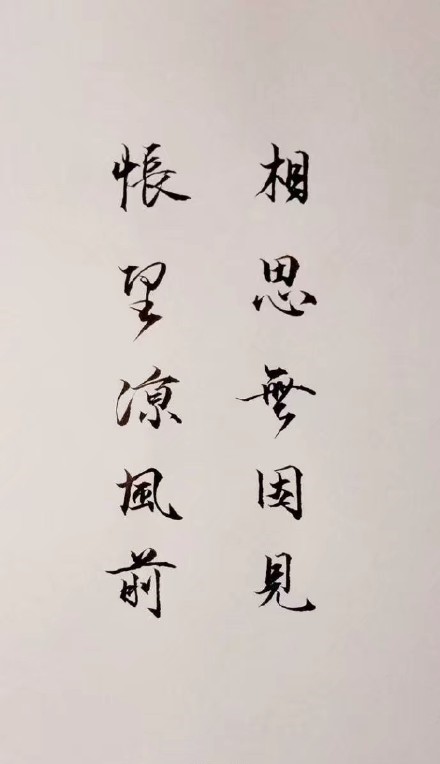 相思無因見
悵望涼風前